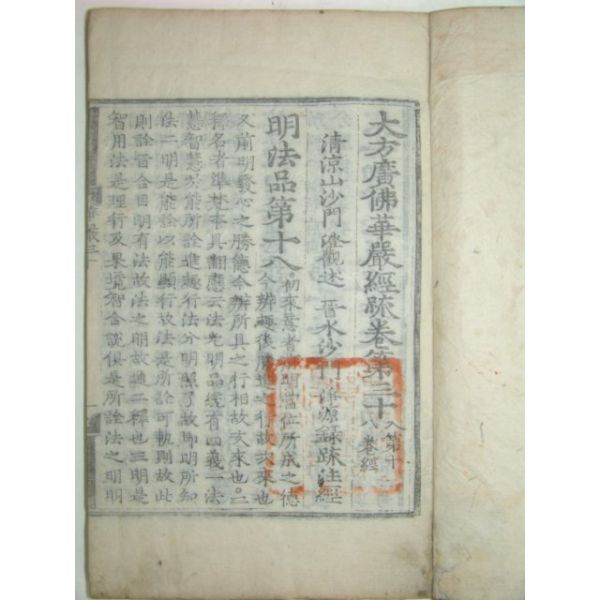 大方廣佛華嚴經疏卷第三十 入第十八卷經
清涼山沙門 澄觀述 晉水沙門 淨源錄疏注經
明法品第十八 初來意者 明當位所成之德
今辨趣後 勝進之行故次來也二
又前明發心之勝德今辨所具之行相故次來也二
釋名者準梵本具翻應云法光明品總有四義一法
慧智慧於能所詮進趣行法分明照了故即明所知
法二明是能詮以能顯行故法是所詮可軌則故此
則詮旨合目明有法故法之明故通二釋也三明是
智用法是理行及果境智合說俱是所詮法之明明